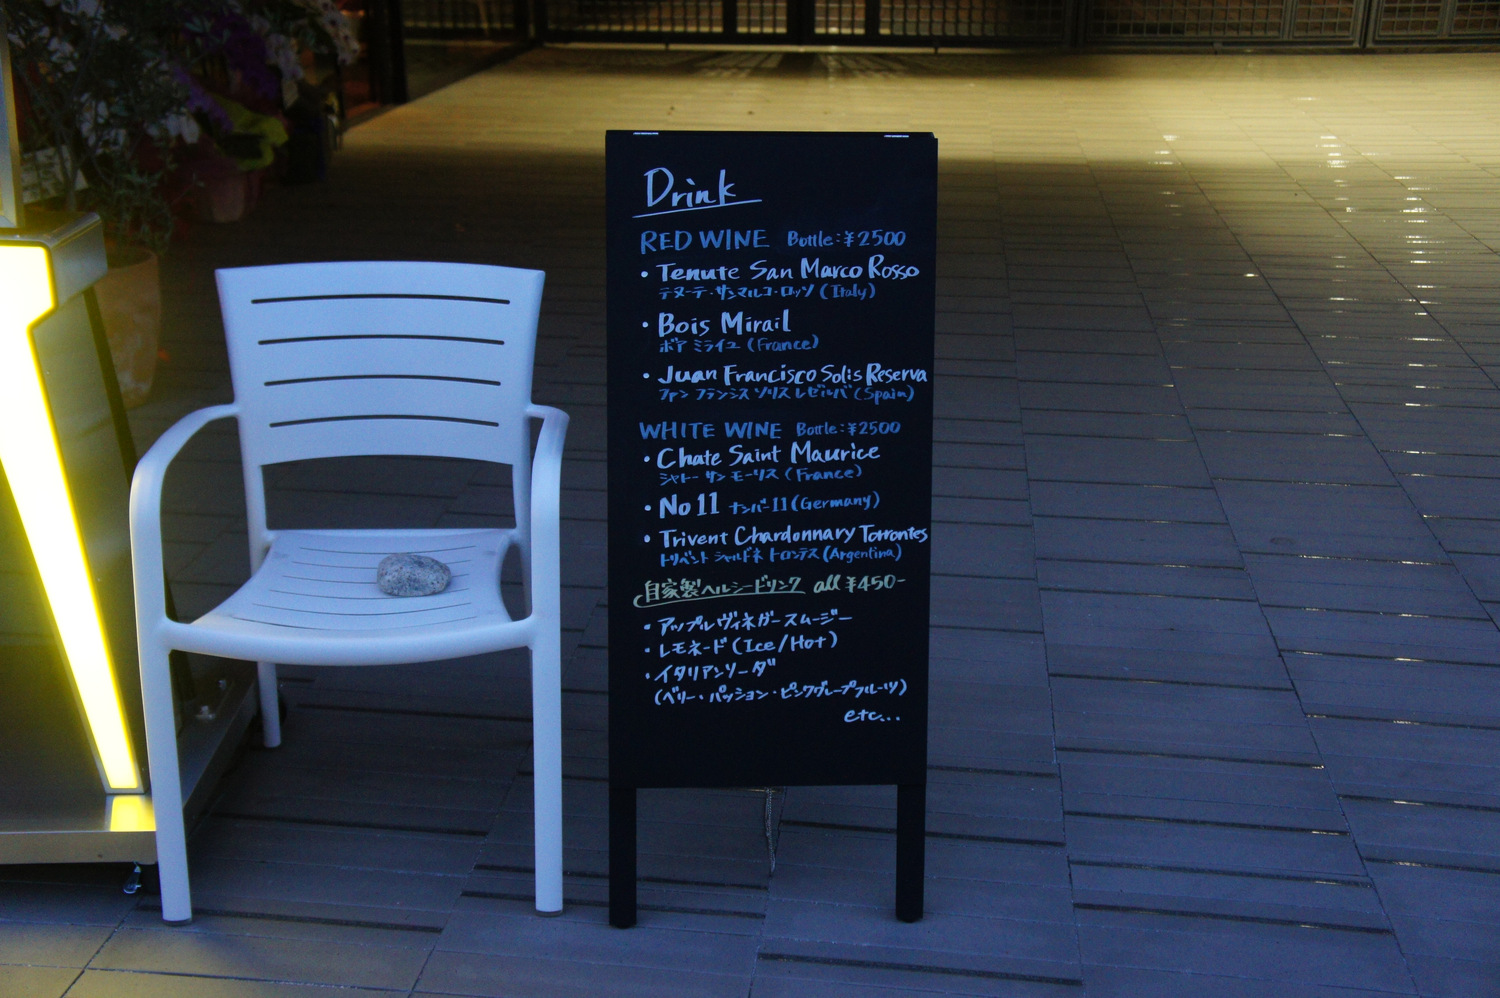 Drink
RED WINE Bottle:¥2500
・Tenute San Marco Rosso
テヌーテ・サンマルコ・ロッソ (Italy)
・Bois Mirail
ボア ミライユ (France)
・Juan Francisco Solis Reserva
ファン フランシス ソリス レゼルバ (Spain)
WHITE WINE Bottle:¥2500
・Chate Saint Maurice
シャトー サン モーリス (France)
・No 11 ナンバー11 (Germany)
・Trivent Chardonnary Torrontes
トリベント シャルドネ トロンテス (Argentina)
自家製ヘルシードリンク all ¥450-
・アップルヴィネガースムージー
・レモネード (Ice/Hot)
・イタリアンソーダ
(ベリー・パッション・ピンクグレープフルーツ)
etc...